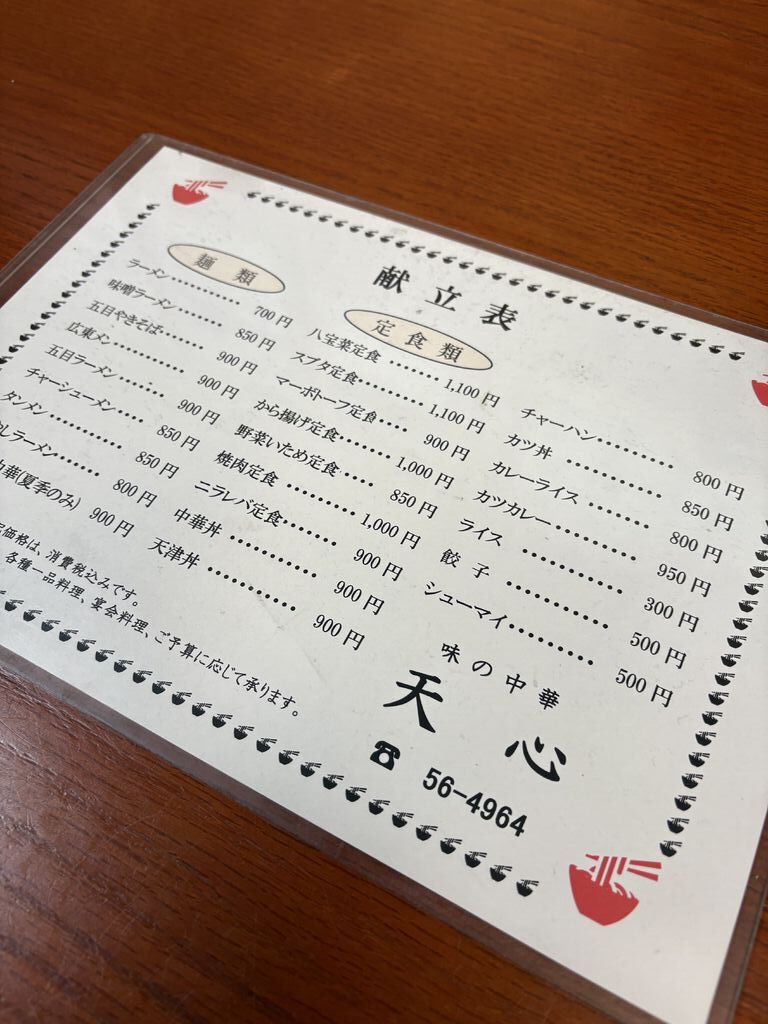 献立表
麺類
ラーメン・・・・・・・・・・・700円
味噌ラーメン・・・・・・・850円
五目やきそば・・・・・・・900円
広東メン・・・・・・・・・・・900円
五目ラーメン・・・・・・・900円
チャーシューメン・・・・850円
タンメン・・・・・・・・・・・850円
しラーメン・・・・・・・800円
中華(夏季のみ) 900円
定食類
八宝菜定食・・・・・・・1,100円
スブタ定食・・・・・・・・1,100円
マーボトーフ定食・・・・900円
から揚げ定食・・・・・・・1,000円
野菜いため定食・・・・850円
焼肉定食・・・・・・・・・1,000円
ニラレバ定食・・・・・・・900円
中華丼・・・・・・・・・・・900円
天津丼・・・・・・・・・・・900円
チャーハン・・・・・・・・・800円
カツ丼・・・・・・・・・・・850円
カレーライス・・・・・・・800円
カツカレー・・・・・・・・・950円
ライス・・・・・・・・・・・300円
餃子・・・・・・・・・・・500円
シューマイ・・・・・・・・・500円
価格は、消費税込みです。
各種一品料理、宴会料理、ご予算に応じて承ります。
味の中華
天心
☎ 56-4964